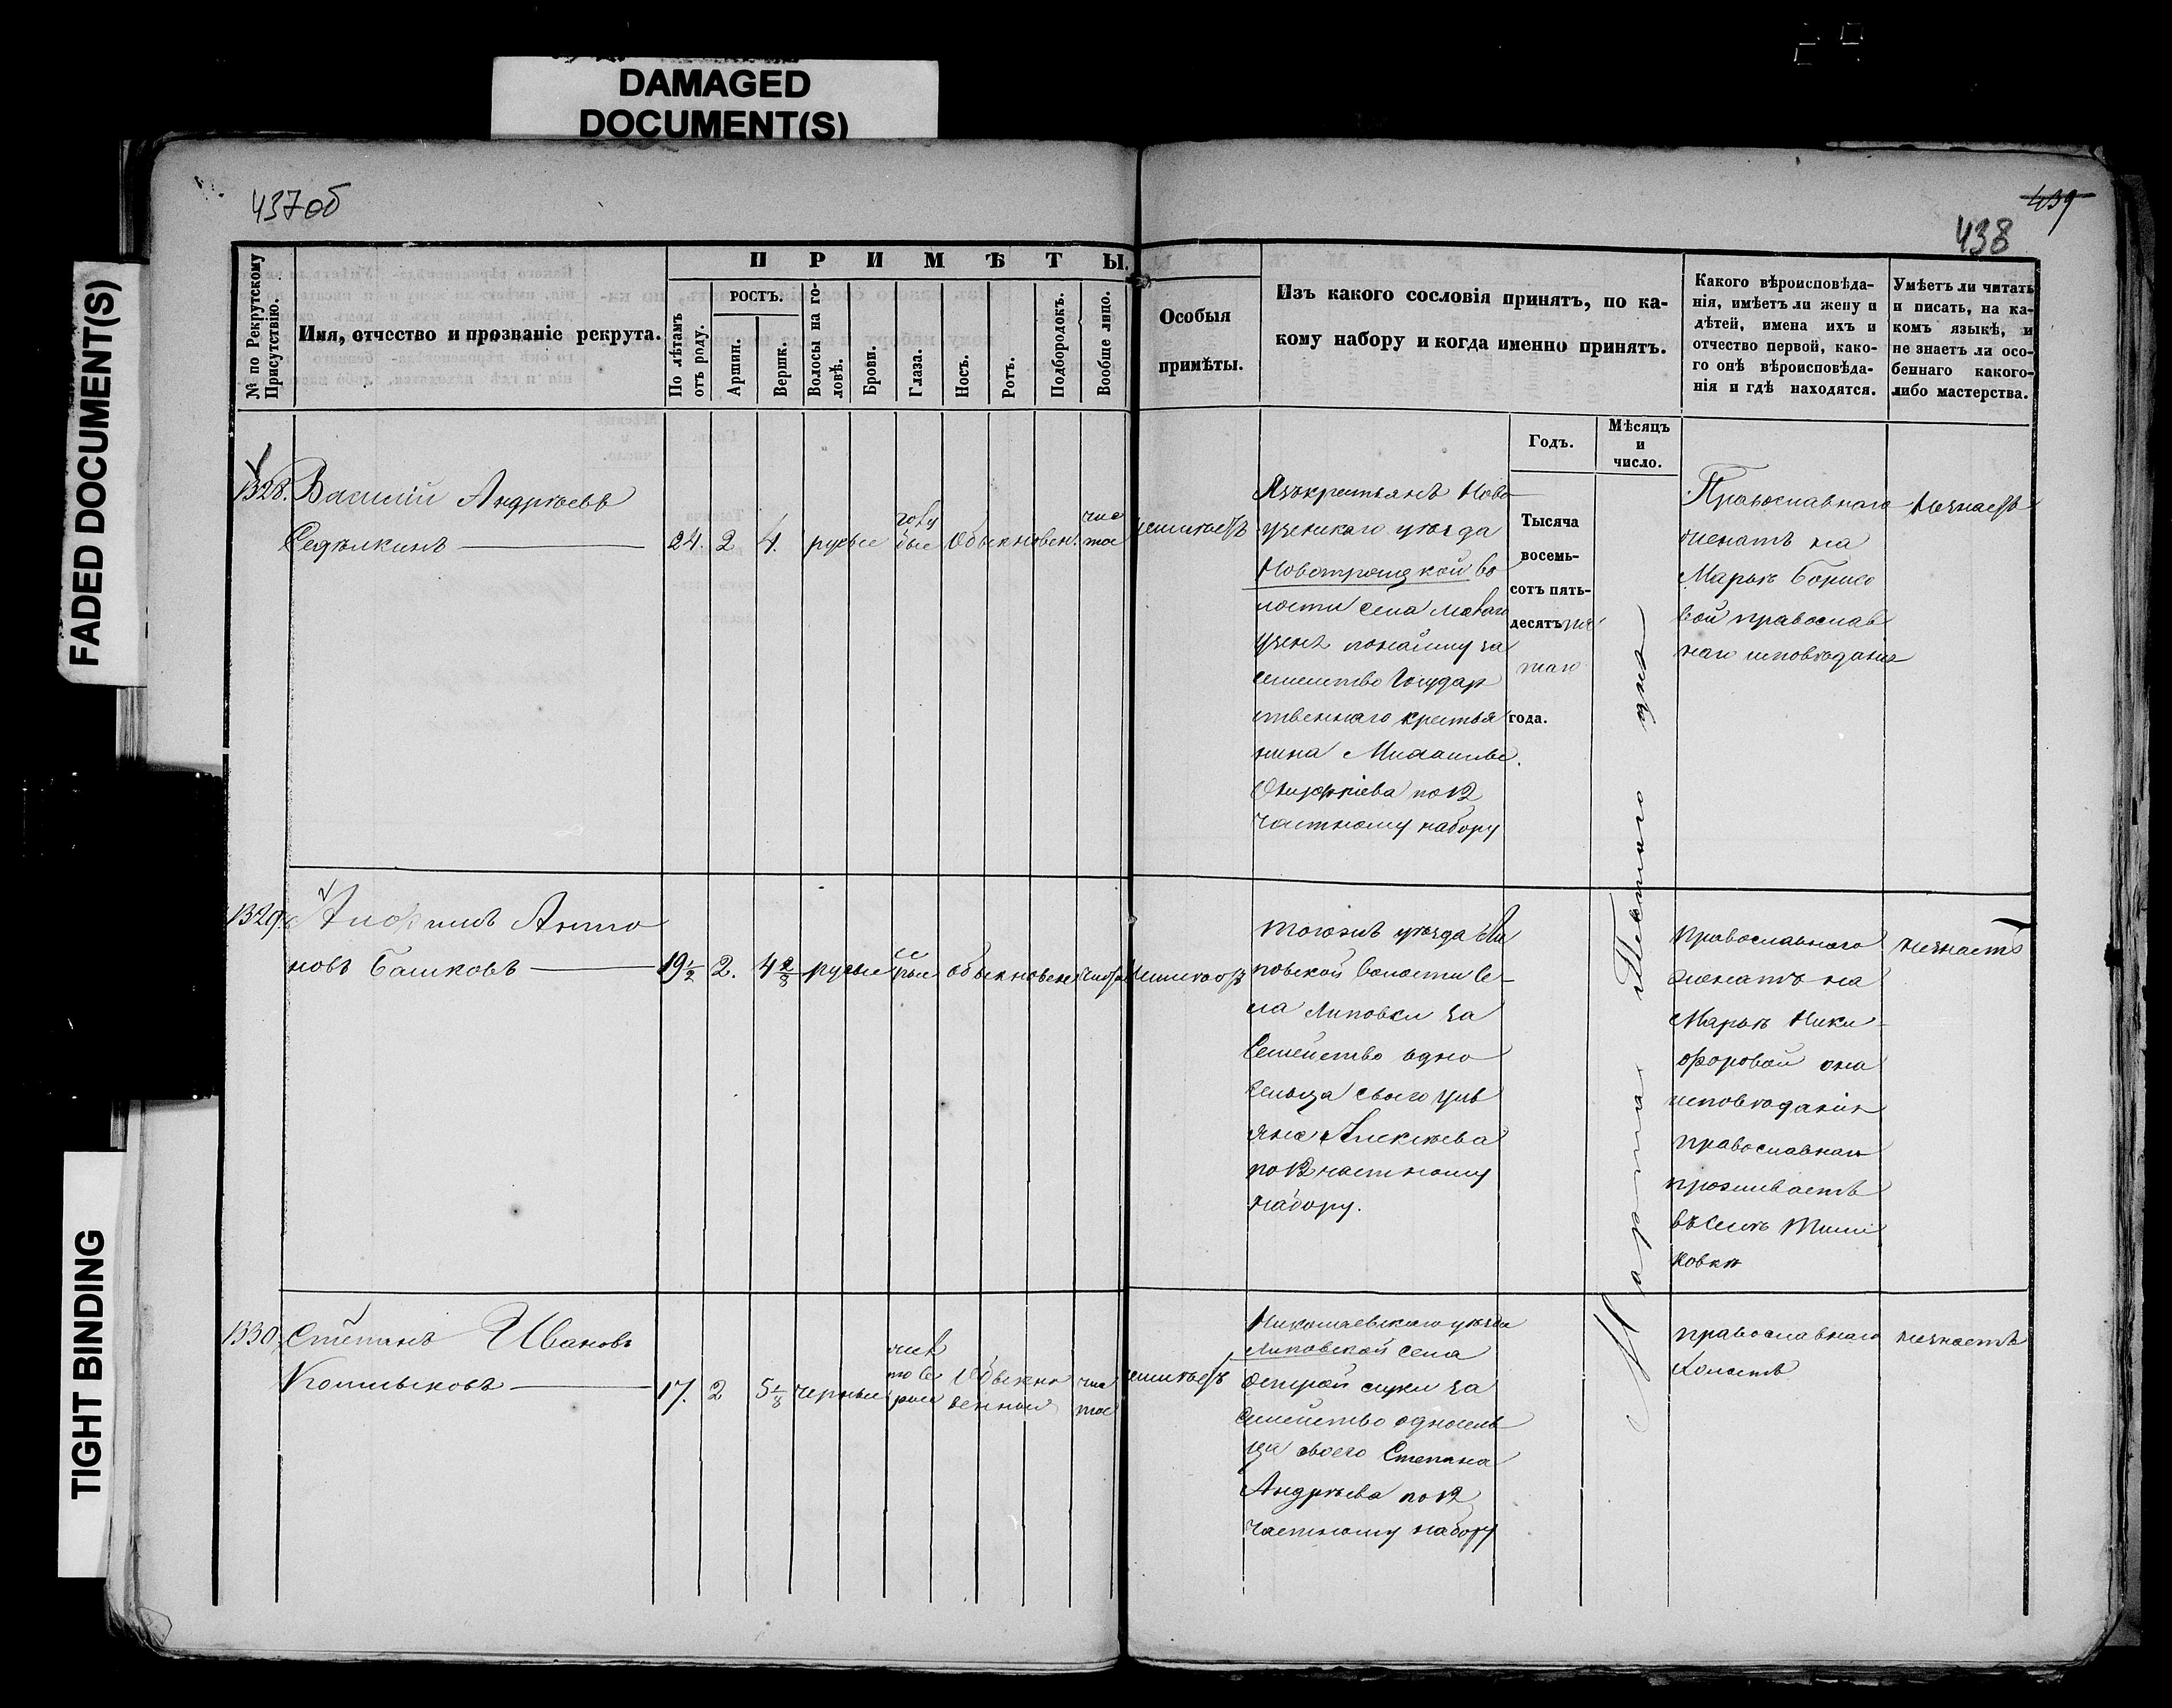 DAMAGED
DOCUMENT(S)
FADED DOCUMENT(S)
TIGHT BINDING
437об
439
438
№ по Рекрутскому
Присутствію.
Имя, отчество и прозваніе рекрута.
ПРИМѢТЫ.
По лѣтамъ
отъ роду.
РОСТЪ.
Аршин.
Вершк.
Волосы на го-
ловѣ.
Брови.
Глаза.
Носъ.
Ротъ.
Подбородокъ.
Вообще лицо.
Особыя
примѣты.
Изъ какого сословія принятъ, по ка-
кому набору и когда именно принятъ.
Какого вѣроисповѣда-
нія, имѣетъ ли жену и
дѣтей, имена ихъ и
отчество первой, како-
го онѣ вѣроисповѣда-
нія и гдѣ находятся.
Умѣетъ ли читать
и писать, на ка-
комъ языкѣ, и
не знаетъ ли осо-
беннаго какого-
либо мастерства.
Годъ.
Мѣсяцъ
и
число.
1328.
Василій Андреевъ
Седѣлкинъ
24.
2
4.
русые
голу
бые
обыкновен.
чис
тое
неимѣетъ
Изъ крестьянъ Ново
узенскаго уѣзда
Новотроицкой во
лости села Малаго
Узеня по найму за
семейство Государ
ственнаго крестья
нина Михаила
по 12
частному набору
Тысяча
восемь-
сотъ пять-
десятъ пя
таго
года.
Марта Шестаго дня
Православнаго
женатъ на
Марьѣ Борисо
вой православ
наго исповѣданія
незнаетъ
1329.
Анто
новъ Башковъ
19 1/2
2.
4 2/8
русые
се
рые
обыкновен
чистое
неимѣетъ
тогожъ уѣзда Ли
повской волости се-
ла Липовки за
семейство одно
сельца своего
Алексѣева
по 12 частному
набору.
православнаго
женатъ на
Марьѣ Ники-
форовой она
исповѣданія
православнаго
проживаетъ
въ селѣ
незнаетъ
1330.
Степанъ Ивановъ
17.
2
5 1/8
черные
рые
Обыкно
венный
чис
тое
неимѣетъ
Николаевскаго уѣзда
Липовской села
Острой Луки за
семейство односель
ца своего Степана
Андреева по 12
частному набору
православнаго
холостъ
незнаетъ